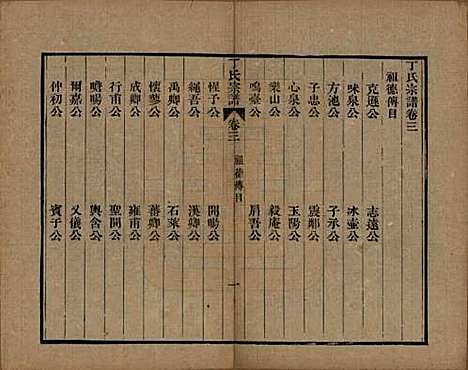 丁氏宗譜卷三
祖德傳目
克遜公 志遠公
味泉公 冰壺公
方池公 子承公
子忠公 震鄰公
心泉公 玉陽公
棠山公 毅庵公
鳴臺公 肩吾公
丁氏宗譜 卷三 祖德傳目 一
惺予公 開暘公
繩吾公 漢卿公
禹卿公 石萊公
懷蓼公 蕃卿公
成卿公 雍甫公
行甫公 聖開公
曉暘公 輿舍公
爾嘉公 又儀公
仲初公 賓子公